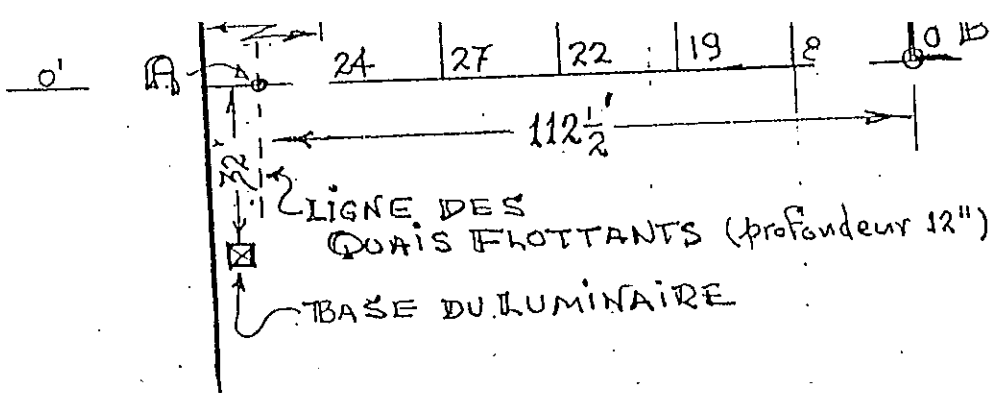 0' A 24 27 22 19 8 0 B
112 1/2'
32'
LIGNE DES
QUAIS FLOTTANTS (profondeur 12")
BASE DU LUMINAIRE